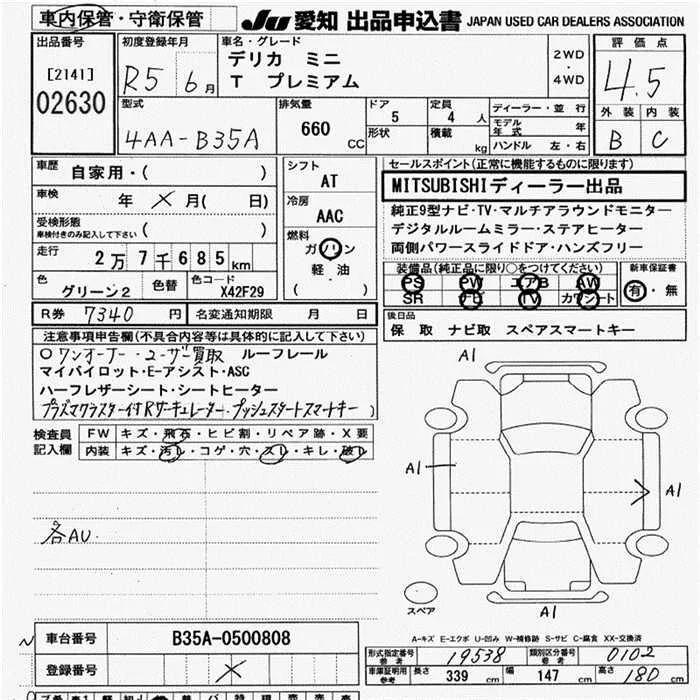 車内保管・守衛保管 JU 愛知 出品申込書 JAPAN USED CAR DEALERS ASSOCIATION
出品番号 初度登録年月 車名・グレード 評価点
[2141] R5年 6月 デリカ ミニ 2WD・4WD 4.5
02630 T プレミアム
外装 内装
B C
型式 排気量 ドア 定員 ディーラー・並行
4AA-B35A 660 CC 5 4人 モデル年式 年
形状 積載 kg ハンドル 左・右
車歴 自家用・( ) シフト セールスポイント(正常に機能するものに限ります)
AT MITSUBISHIディーラー出品
車検 年 × 月( 日) 冷房
AAC 純正9型ナビ・TV・マルチアラウンドモニター
受検形態 車検付きのみ記入して下さい ( ) デジタルルームミラー・ステアヒーター
両側パワースライドドア・ハンズフリー
走行 2万7千685km 燃料 ガソリン 軽油 ( )
装備品(純正品に限り○をつけてください) 新車保証書
PS PW エアB AW 有・無
SR ナビ TV カワシート
色 グリーン2 色替 色コード X42F29
R券 7340円 名変通知期限 月 日 後日品
保 取 ナビ取 スペアスマートキー
注意事項申告欄(不具合内容等は具体的に記入して下さい)
○ワンオーナー・ユーザー買取 ルーフレール
マイパイロット・E-アシスト・ASC
ハーフレザーシート・シートヒーター
プラズマクラスター付Rサーキュレーター・プッシュスタートスマートキー)
検査員記入欄 FW キズ・飛石・ヒビ割・リペア跡・X要
内装 キズ・汚レ・コゲ・穴・スレ・キレ・破レ
各AU
A1
A1
A1
A1
スペア
A-キズ E-エクボ U-凹み W-補修跡 S-サビ C-腐食 XX-交換済
車台番号 B35A-0500808
登録番号 ×
形式指定番号 参考 19538 類別区分番号 参考 0102
車庫証明用 参考 長さ 339 cm 幅 147 cm 高さ 180 cm